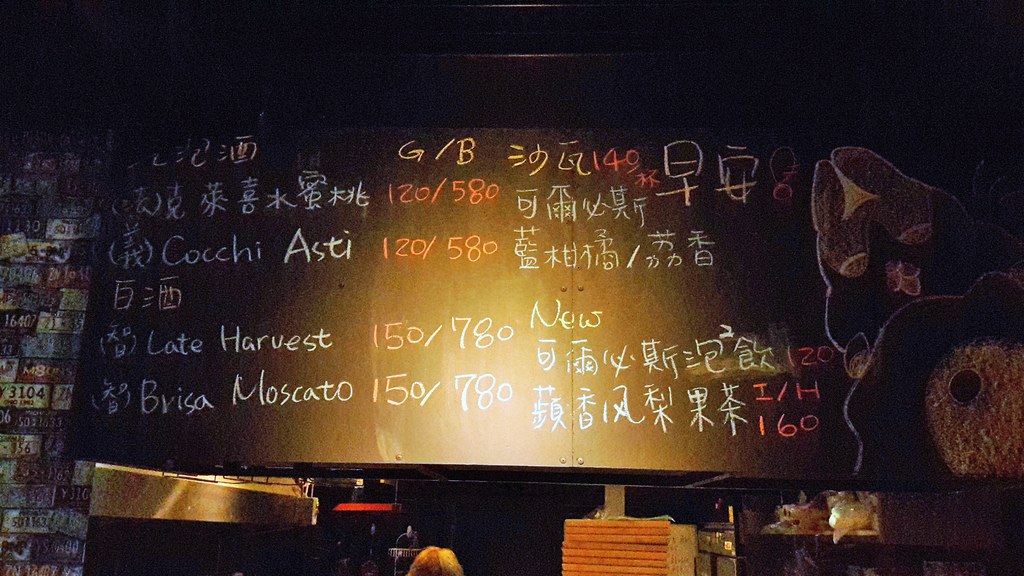 泡酒 G/B
(法)克萊喜水蜜桃 120/580
(義)Cocchi Asti 120/580
白酒
(智)Late Harvest 150/780
(智)Brisa Moscato 150/780
沙瓦140/杯
可爾必斯
藍柑橘/荔香
New
可爾必斯泡²飲 120
蘋香风梨果茶 I/H
160
早安
Y3104
16407